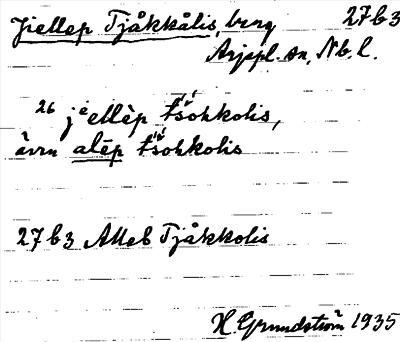 Jiellep Tjåkkålis, berg 27b3
Arjepl. sn, Nb. l.
26 jiellèp t́śohkolis,
även alēp t́śohkolis
27b3 Alleb Tjåkkolis
H. Grundström 1935